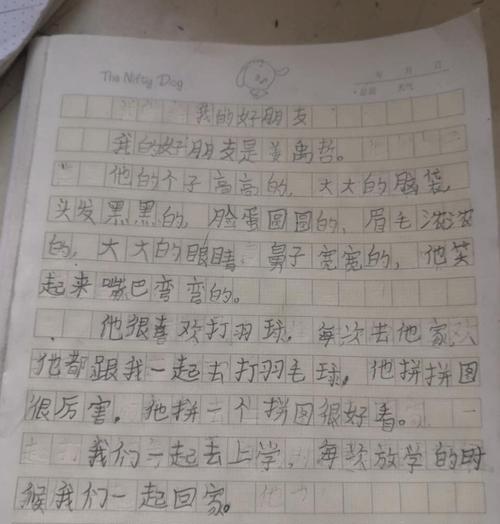 The Nifty Dog
年 月 日
星期 天气
我的好朋友
我的好朋友是姜禹哲。
他的个子高高的，大大的脑袋
头发黑黑的，脸蛋圆圆的、眉毛浓浓
的，大大的眼睛，鼻子宽宽的，他笑
起来嘴巴弯弯的。
他很喜欢打羽球，每次去他家
他都跟我一起去打羽毛球，他拼拼图
很厉害，他拼一个拼图很好看。
我们一起去上学，每次放学的时
候我们一起回家。